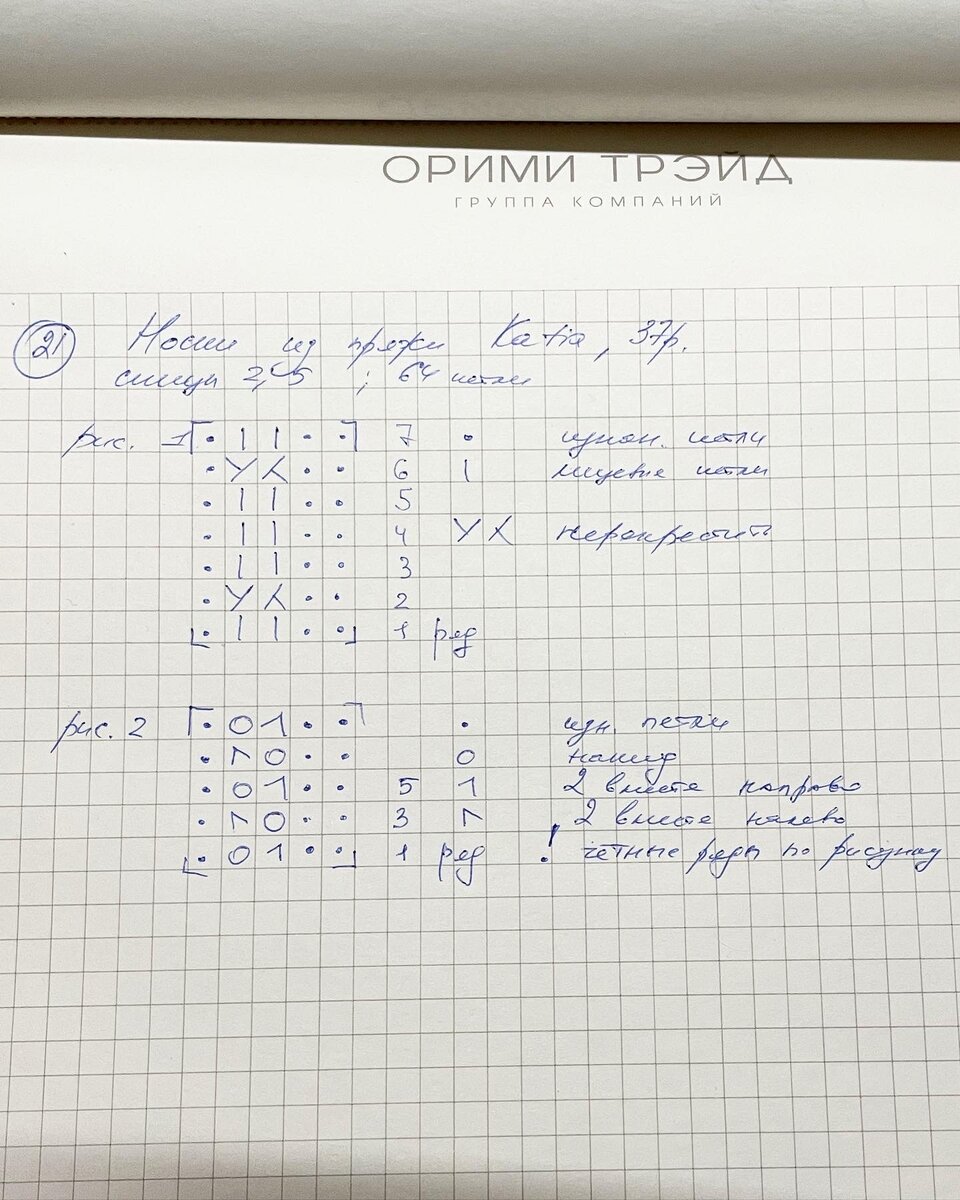 ОРИМИ ТРЭЙД
ГРУППА КОМПАНИЙ
21 Носки из пряжи Katia, 37р.
спицы 2,5 ; 64 петли
рис. 1 • | | • • 7 • изнан. петли
• У Х • • 6 | лицевые петли
• | | • • 5
• | | • • 4 У Х перекрестить
• | | • • 3
• У Х • • 2
• | | • • 1 ряд
рис. 2 • О 1 • • • изн. петли
• Л О • • О накид
• О 1 • • 5 1 2 вместе направо
• Л О • • 3 Л 2 вместе налево
• О 1 • • 1 ряд ! чётные ряды по рисунку